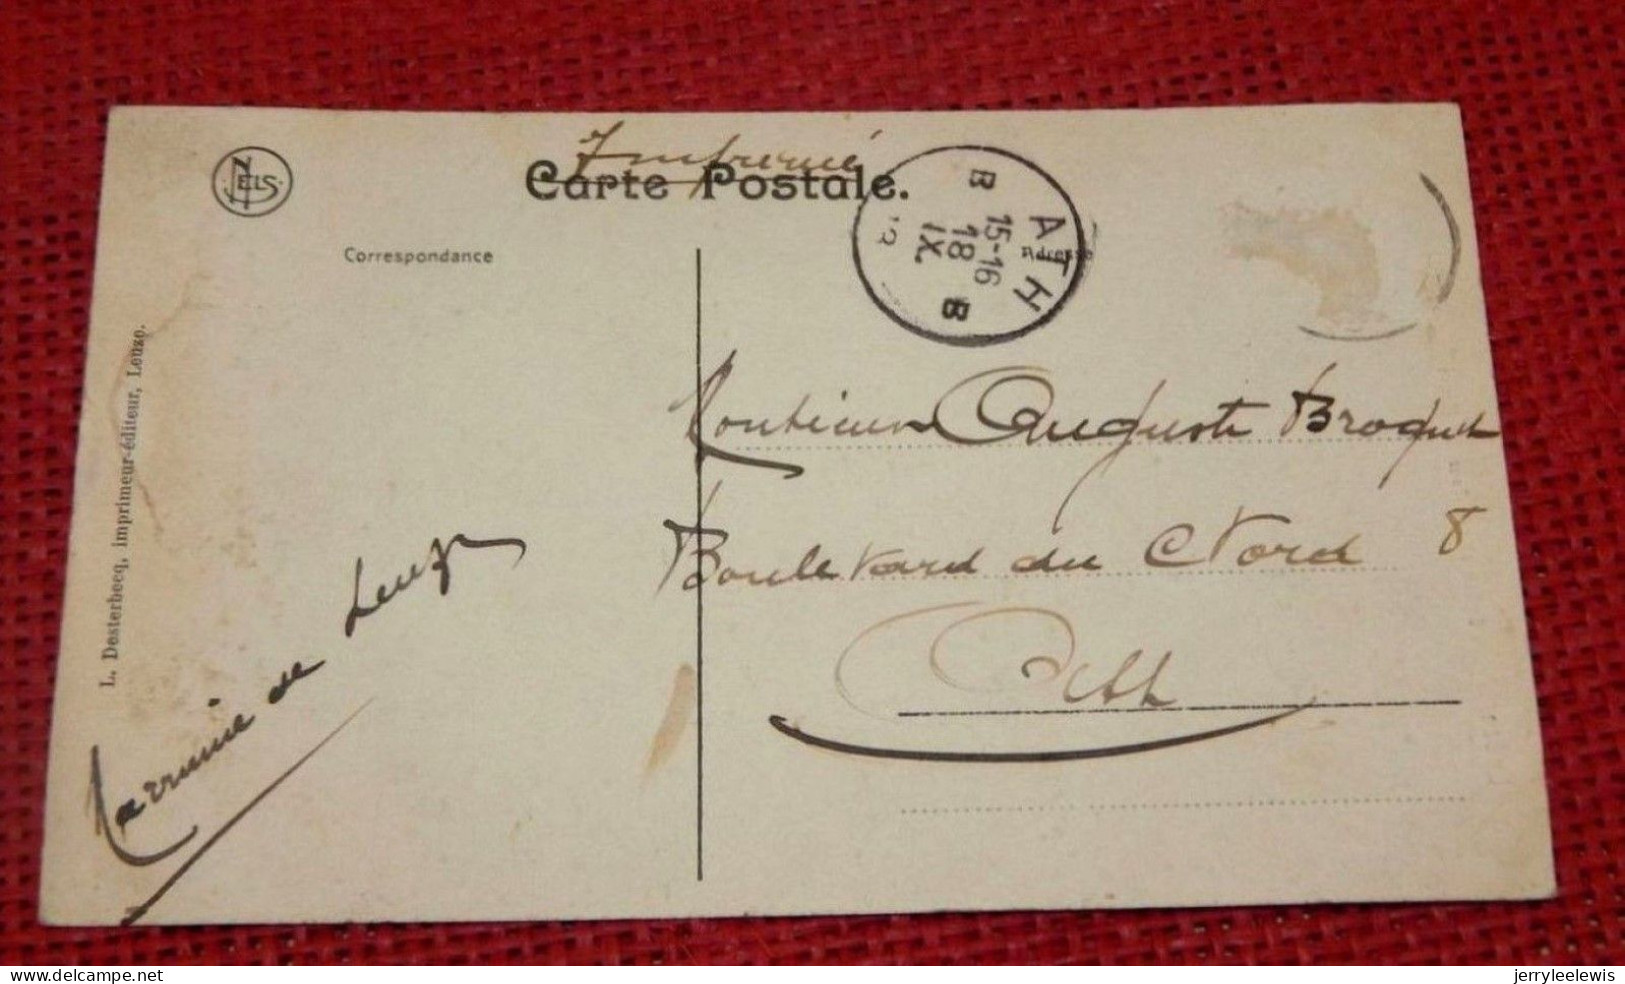 NELS
Imprimé
Carte Postale.
Correspondance
ATH
B
15-16
18
IX.
B
L. Desterbecq, imprimeur-éditeur, Leuze.
Monsieur Auguste Broquet
Boulevard du Nord 8
Ath
de Leuze
www.delcampe.net
jerryleelewis